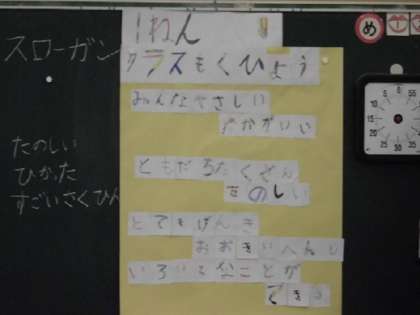 スローガン
たのしい
ひかった
すごいさくひん
1ねん
クラスもくひょう
みんなやさしい
なかがいい
ともだちたくさん
たのしい
とてもげんき
おおきいへんじ
いろいろなことが
できる
め
5
10
15
20
25
30
35
40
45
50
55